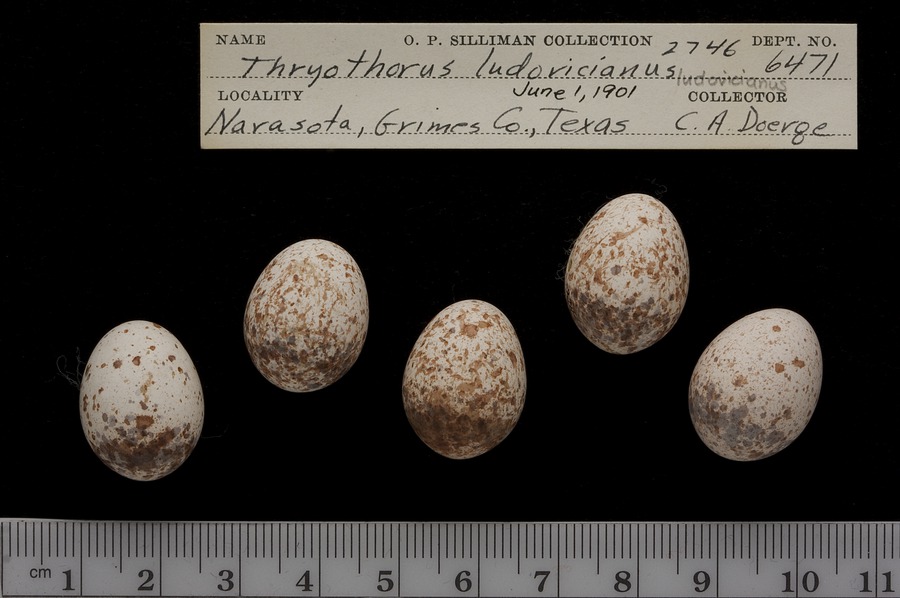 NAME O. P. SILLIMAN COLLECTION 2746 DEPT. NO.
Thryothorus ludovicianus ludovicianus 6471
LOCALITY June 1, 1901 COLLECTOR
Navasota, Grimes Co., Texas C. A. Doerge
cm 1 2 3 4 5 6 7 8 9 10 11